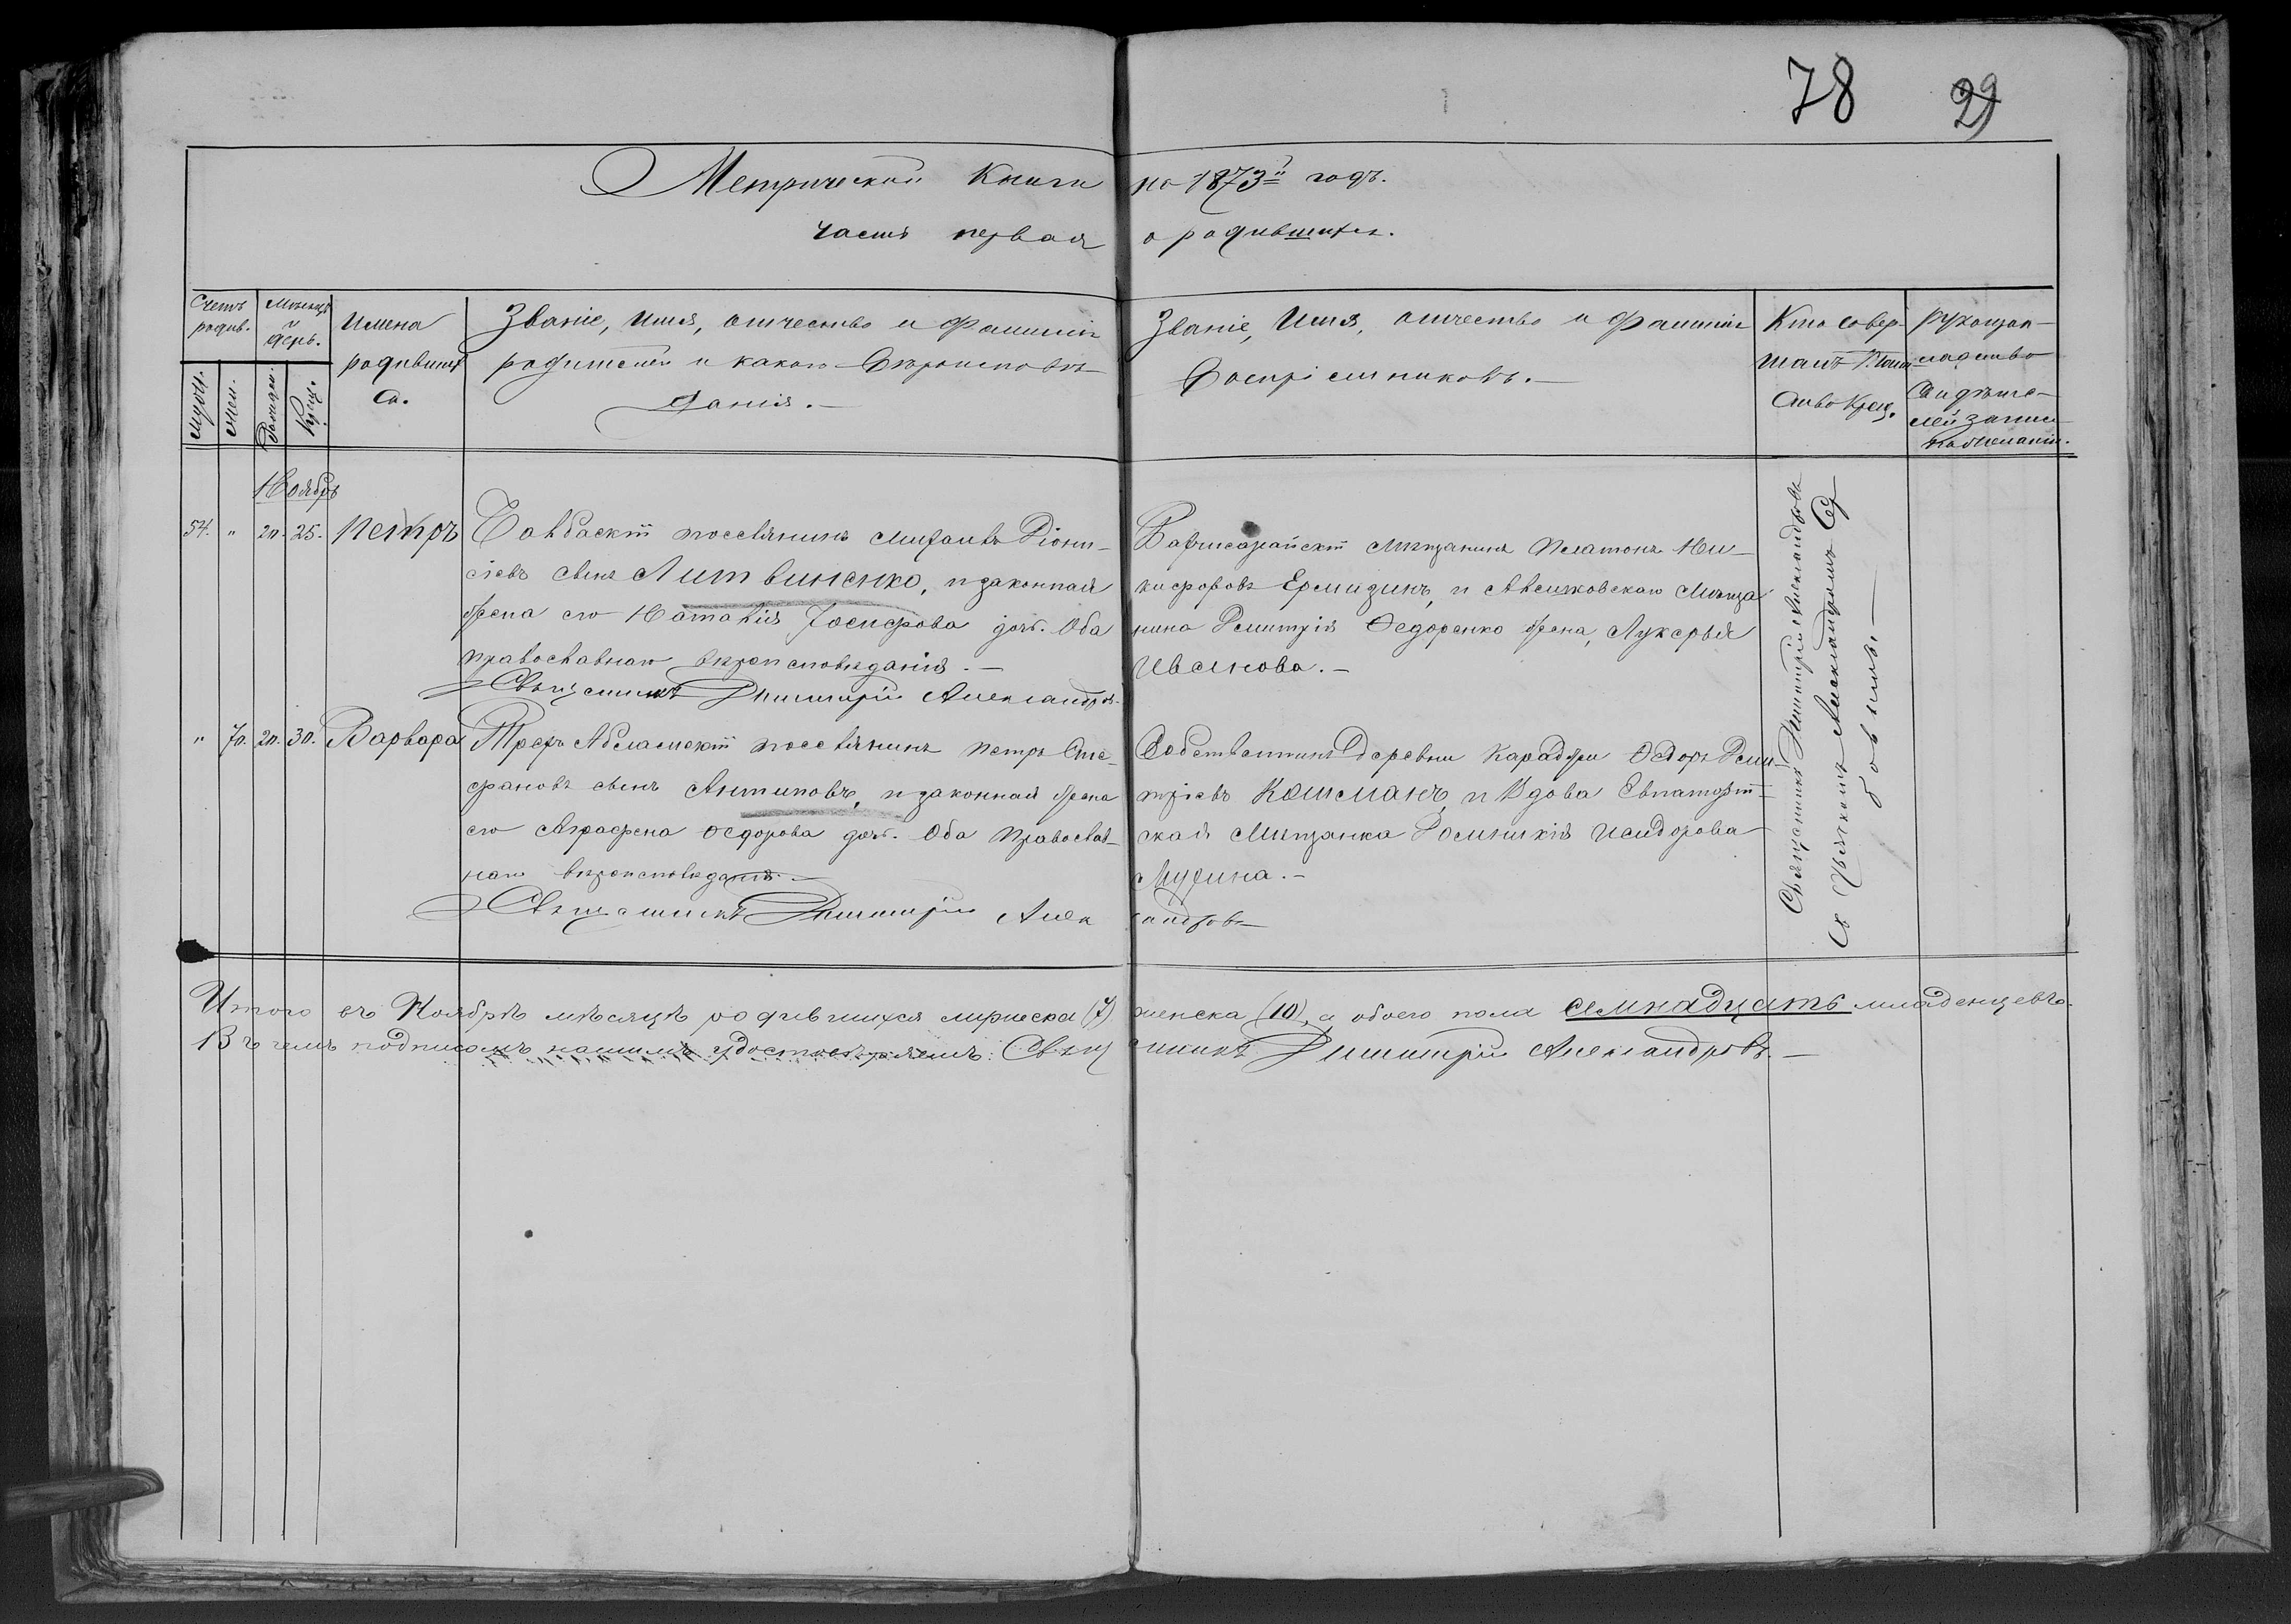 78 29
Метрической Книги на 1873й годъ.
часть первая о родившихся.
Счетъ родив.
Мужск.
Жен.
Мѣсяцъ и день.
Рожден.
Крещ.
Имена
родивших
ся.
Званіе, Имя, отчество и фамилія
родителей и какого Вѣроисповѣ-
данія.—
Званіе, Имя, отчество и фамилія
Воспріемниковъ.—
Кто совер-
шалъ Таин-
ство Крещ.
Рукопри-
кладство
Свидѣте-
лей записи
по желанію.
Ноябрь
54. " 20. 25. Петръ
скій поселянинъ Михаилъ Діони-
сіевъ сынъ Литвиненко, и законная
жена его Наталія Іосифова дочь. Оба
православнаго вѣроисповѣданія.—
Священникъ Димитрій Александровъ.
Бахчисарайскій Мѣщанинъ Платонъ Ни-
кифоровъ Ермидинъ, и Алешковскаго Мѣща
нина Дмитрія Федоренко жена, Лукерья
Иванова.—
" 70. 20. 30. Варвара
Трехъ Абламскій поселянинъ Петръ Сте-
фановъ сынъ Антиповъ, и законная жена
его Аграфена Федорова дочь. Оба Православ-
наго вѣроисповѣданія.—
Священникъ Димитрій Александровъ
Собственникъ деревни Караджи Федоръ Дми-
тріевъ Кошманъ, и Вдова Евпаторій-
ская Мѣщанка Домникія Исидорова
Мухина.—
Священникъ Димитрій Александровъ
съ Александромъ
Итого въ Ноябрѣ мѣсяцѣ родившихся мужеска (7) женска (10), а обоего пола семнадцать младенцевъ.
Въ чемъ подписомъ нашимъ удостовѣряемъ: Священникъ Димитрій Александровъ.—